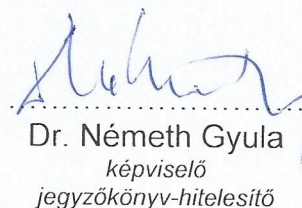 Dr. Németh Gyula
képviselő
jegyzőkönyv-hitelesítő